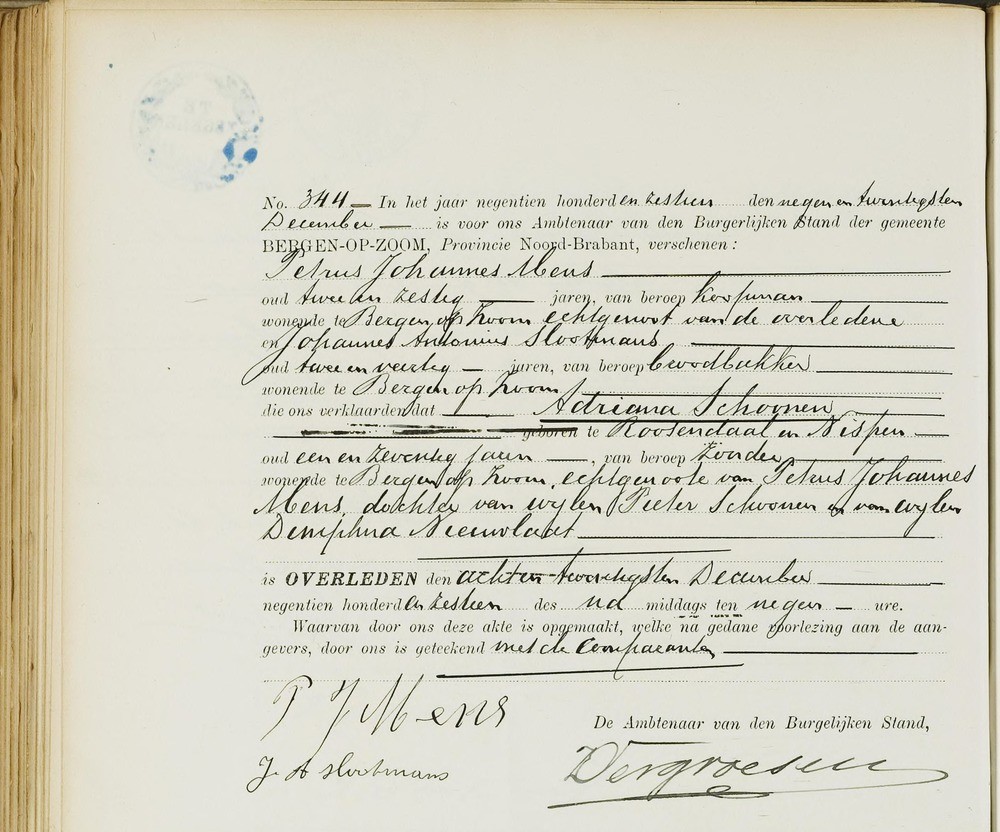 No. 344 — In het jaar negentien honderd en zestien den negen en twintigsten
December — is voor ons Ambtenaar van den Burgerlijken Stand der gemeente
BERGEN-OP-ZOOM, Provincie Noord-Brabant, verschenen :
Petrus Johannes Mens
oud twee en zestig — jaren, van beroep koopman
wonende te Bergen op Zoom echtgenoot van de overledene
en Johannes Antonius Slootmans
oud twee en veertig — jaren, van beroep broodbakker
wonende te Bergen op Zoom
die ons verklaarden dat Adriana Schoonen
geboren te Roosendaal en Nispen —
oud een en zeventig jaren —, van beroep zonder
wonende te Bergen op Zoom, echtgenoote van Petrus Johannes
Mens, dochter van wylen Pieter Schoonen en van wylen
Demphna Nieuwlaat
is OVERLEDEN den acht en twintigsten December
negentien honderd en zestien des na middags ten negen — ure.
Waarvan door ons deze akte is opgemaakt, welke na gedane voorlezing aan de aan-
gevers, door ons is geteekend met de comparanten
P J Mens
De Ambtenaar van den Burgelijken Stand,
J. A Slootmans